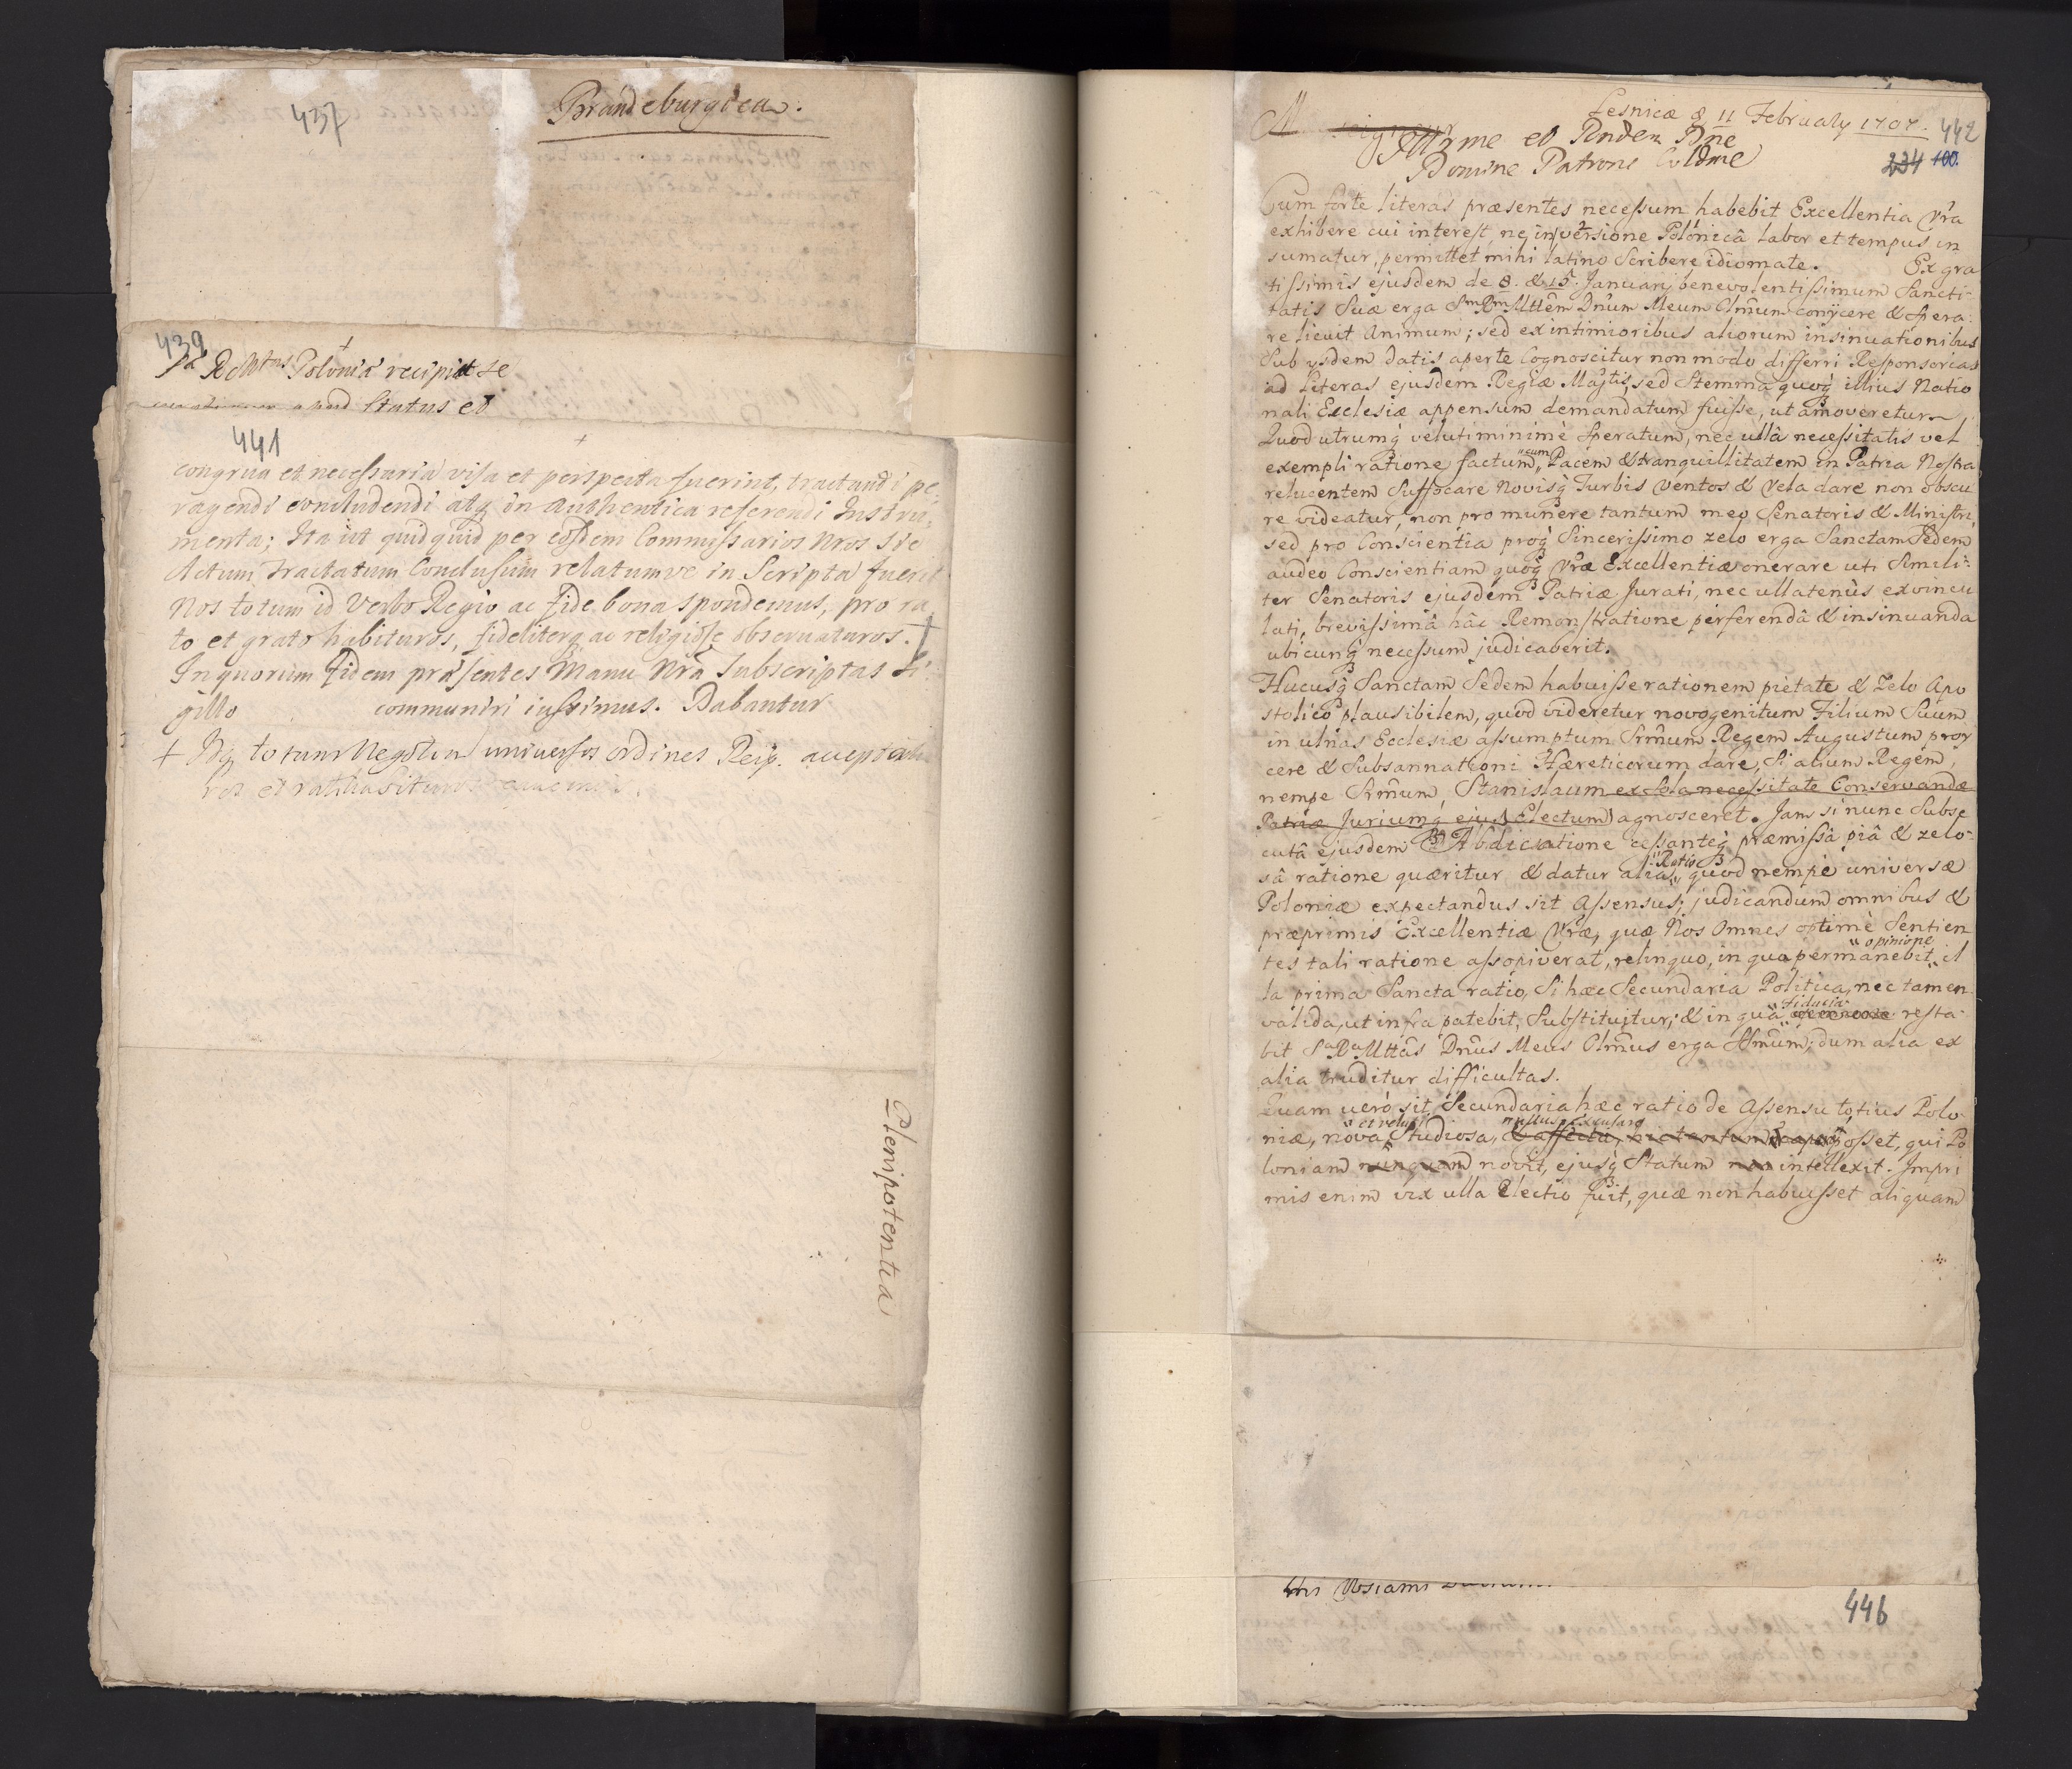 437
Brandeburgica.
439
Sa RMtas Polonia recipiat se
apud Status et
441
congrua et necessaria visa et perspecta fuerint, tractandi pe-
ragendi concludendi atq in Authentica referendi Instru-
menta; Ita ut quidquid per eosdem Commissarios Nros sic
Actum, Tractatum Conclusum relatumve in Scripta fuerit
Nos totum id Verbo Regio ac fide bona spondemus, pro ra
to et grato habituros, fideliterq ac religiose observaturos. +
In quorum Fidem præsentes Manu Nra Subscriptas Si-
gillo communiri iussimus. Dabantur
+ totum Negotiu universos ordines Reip.
Plenipotentia
Lesnicæ d 11 February 1707. 442
Illrme et Rndem Dne 234 100.
Domine Patrone Coldme
Cum forte literas præsentes necessum habebit Excellentia Vra
exhibere cui interest, ne in versione Polonica labor et tempus in
sumatur, permittet mihi latino Scribere idiomate. Ex gra
tissimis ejusdem de 8. & 15. January benevolentissimum Sancti-
tatis Suæ erga Smm Rm Mttem Dnum Meum Clmum conijcere & spera-
re licuit Animum; sed ex intimioribus aliorum insinuationibus
Sub ysdem datis aperte Cognoscitur non modo differri Responsorias
ad Literas ejusdem Regiæ Majtis, sed Stemma quoq illius Natio
nali Ecclesiæ appensum demandatum fuisse, ut amoveretur
Quod utrumq veluti minimè speratum, nec ullâ necessitatis vel
exempli ratione factum, "cum" Pacem & tranquillitatem in Patria Nostra
relucentem Suffocare Novisq Turbis ventos & vela dare non obscu
re videatur, non pro munere tantum meo Senatoris & Ministri,
sed pro Conscientia proq Sincerissimo zelo erga Sanctam Sedem
audeo Conscientiam quoq Vræ Excellentiæ onerare uti Simili-
ter Senatoris ejusdem Patriæ Jurati, nec ullatenùs exvincu
lati, brevissimâ hâc Remonstratione perferendâ & insinuanda
ubicunq necessum judicaberit.
Hucusq Sanctam Sedem habuisse rationem pietate & Zelo Apo
stolico plausibilem, quod videretur novogenitum Filium Suum
in ulnas Ecclesiæ assumptum Srmum Regem Augustum proy
cere & Subsannationi Hæreticorum dare, Si alium Regem,
nempe Srmum, Stanislaum ex sola necessitate Conservandæ
Patriæ Juriumq ejus Electum agnosceret. Jam si nunc Subse
cutâ ejusdem Abdicatione cessanteq præmissâ piâ & zelo-
sâ ratione quæritur & datur alia "Ratio" quod nempè universæ
Poloniæ expectandus sit Assensus; judicandum omnibus &
præprimis Excellentiæ Vræ, quæ Nos Omnes optimè Sentien
tes tali ratione assopiverat, relinquo, in qua permanebit "opinione" il
la prima Sancta ratio, Si hæc Secundaria Politica, nec tamen
valida, ut infra patebit, Substituitur; & in quâ "Fiducia" resta-
bit Sa Ra Mttas Dnus Meus Clmus erga Illmum; dum alia ex
alia truditur difficultas.
Quam verò sit Secundaria hæc ratio de Assensu totius Polo
niæ, nova, Studiosa, posset, qui Po
loniam nunquam novit, ejusq Statum non intellexit. Impri
mis enim vix ulla Electio fuit, quæ non habuisset aliquam
446